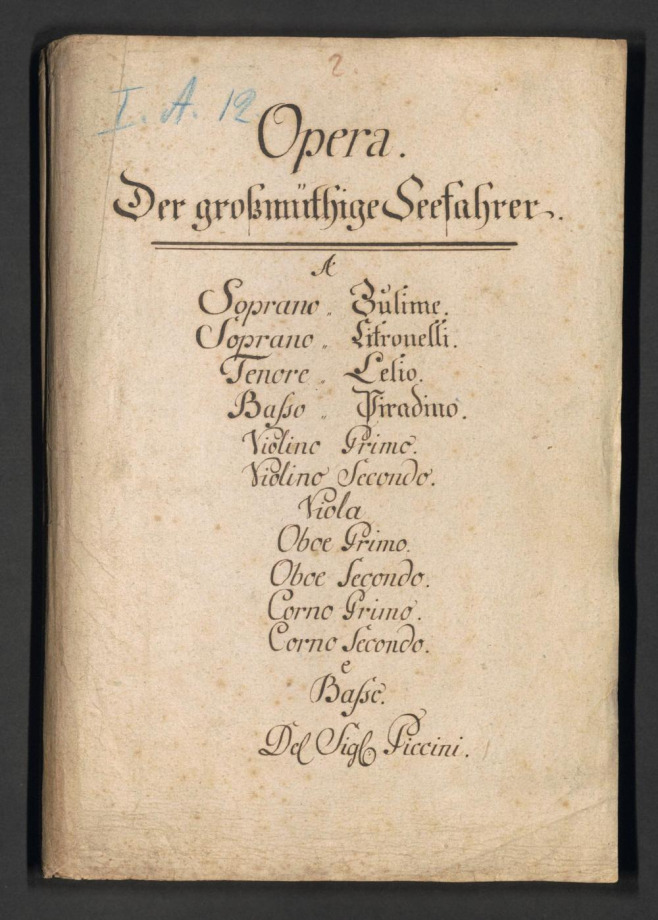 2.
I. A. 12
Opera.
Der großmüthige Seefahrer.
A
Soprano „ Zulime.
Soprano „ Citronelli.
Tenore „ Lelio.
Baſso „ Piradino.
Violino Primo.
Violino Secondo.
Viola
Oboe Primo.
Oboe Secondo.
Corno Primo.
Corno Secondo.
e
Baſso.
Del Sigr Piccini.